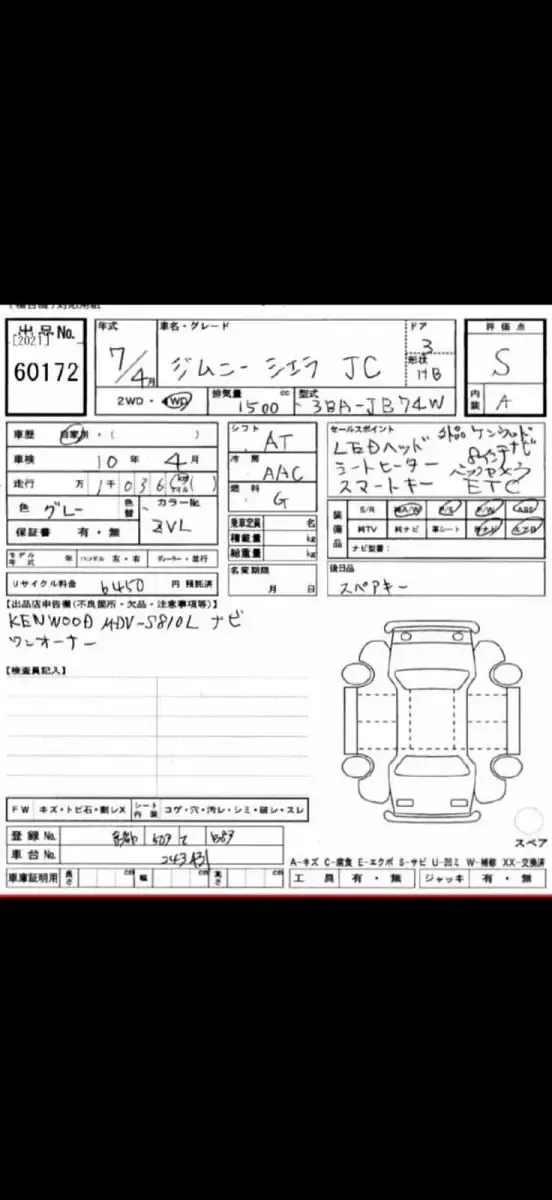 出品No.
[2021]
60172
年式
7/4月
車名・グレード
ジムニー シエラ JC
ドア
3
形状
HB
評価点
S
内装
A
2WD・4WD
排気量
1500 cc
型式
3BA-JB74W
車歴 自家用・( )
車検 10年 4月
走行 万 1千 036 (km マイル)
色 グレー
色替
カラーNo.
ZVL
保証書 有・無
モデル年式 年 ハンドル 左・右 ディーラー・並行
リサイクル料金 6450 円 預託済
シフト
AT
冷房
AAC
燃料
G
乗車定員 名
積載量 kg
総重量 kg
名変期限
月 日
セールスポイント
LEDヘッド 外品ケンウッド
8インチナビ
シートヒーター バックカメラ
スマートキー ETC
装備品
S/R 純A/W P/S P/W ABS
純TV 純ナビ 革シート
ナビ型番:
後日品
スペアキー
【出品店申告欄(不良箇所・欠品・注意事項等)】
KENWOOD MDV-S810L ナビ
ワンオーナー
【検査員記入】
FW キズ・トビ石・割レX シート内装 コゲ・穴・汚レ・シミ・破レ・スレ
登録No.
車台No.
車庫証明用 長さ cm 幅 cm 高さ cm
スペア
A-キズ C-腐食 E-エクボ S-サビ U-凹ミ W-補修 XX-交換済
工具 有・無 ジャッキ 有・無